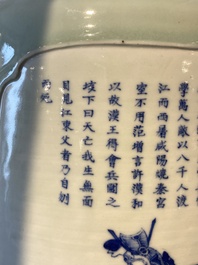 學萬人敵以八千人渡
江而西屠咸陽燒秦宮
室不用范增言許漢和
以故漢王得會兵圍之
垓下曰天亡我生無面
目見江東父老乃自刎
而死